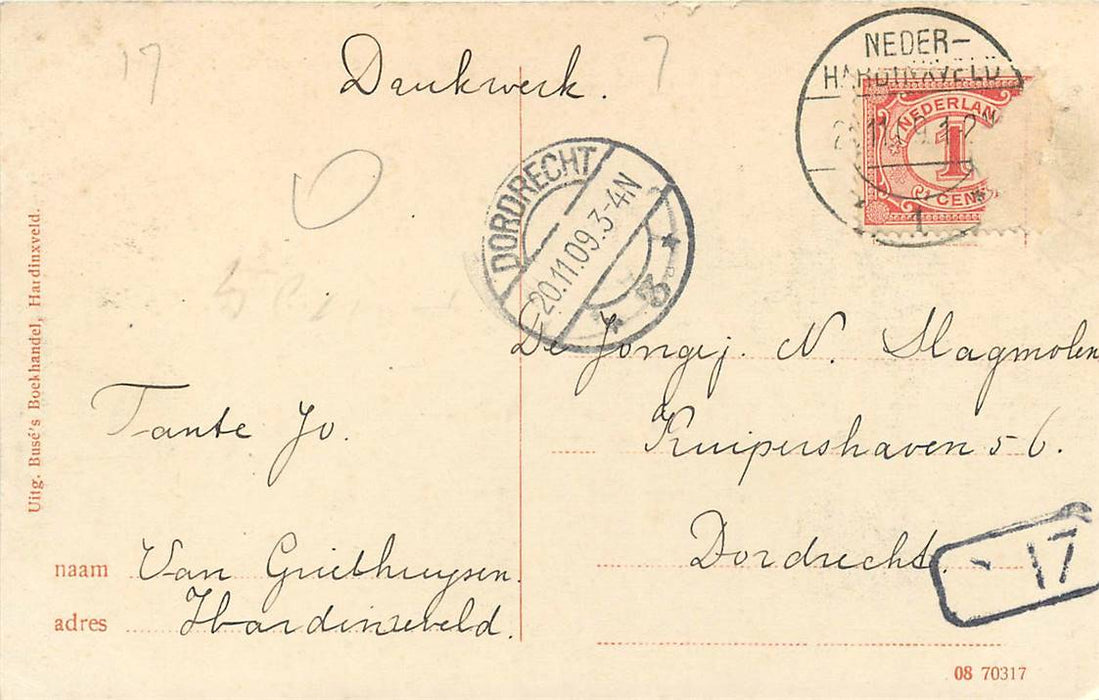 17
7
Dankwerk.
NEDER-
HARDINXVELD
NEDERLAN
1
CEN
1
DORDRECHT
20.11.09.3-4N
De Jongej. N. Slagmolen
Kuipershaven 56.
Dordrecht.
17
Tante Jo.
naam Van Griethuysen.
adres Hardinxveld.
Uitg. Busé's Boekhandel, Hardinxveld.
08 70317